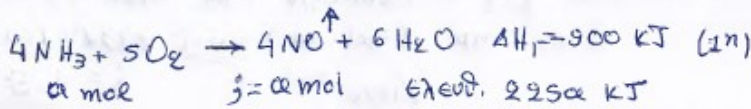 4NH₃ + 5O₂ → 4NO↑ + 6H₂O ΔH₁=-900 KJ (1η)
α mol ;=α mol ελευθ. 225α KJ